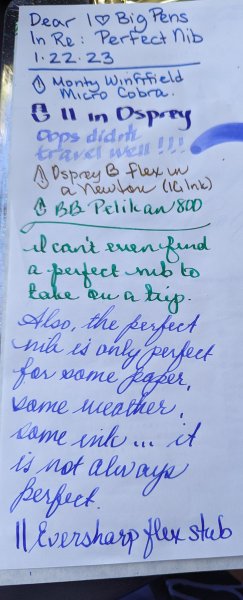 Dear I ♡ Big Pens
In Re: Perfect Nib
1.22.23
Monty Winfrfield
Micro Cobra.
11 in Osprey
Oops didn't
travel well!!!
Osprey B flex in
a Newton (IG Ink)
BB Pelikan 800
I can't even find
a perfect nib to
take on a trip.
Also, the perfect
nib is only perfect
for some paper,
some weather,
some ink... it
is not always
perfect.
|| Eversharp flex stub